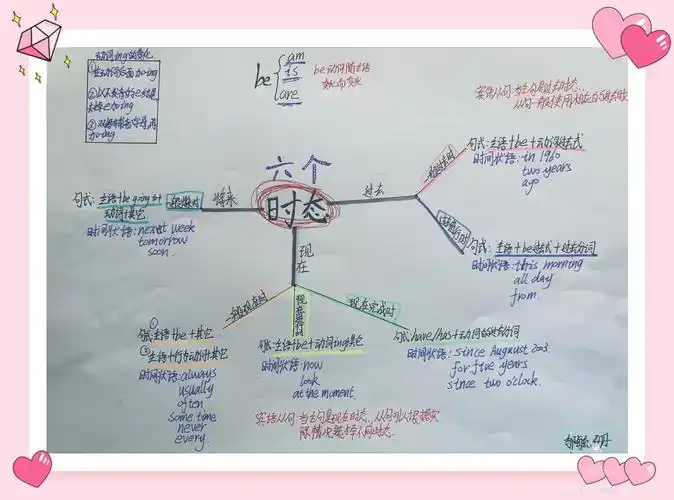 动词ing的变化
①在动词后面加ing
②以不发音的e结尾
去掉e加ing
③双写末尾字母再
加ing.
be
am
is
are
be动词随主语
变化而变化
宾语从句:主句是过去时态,
从句一般使用相应的过去时态
六个
时态
将来
一般将来时
句式:主语+be going to+
动词+其它
时间状语:next week
tomorrow
soon.
过去
一般过去时
句式:主语+be+动词过去式
时间状语:in 1980
two years
ago
过去进行时
句式:主语+be过去式+过去分词
时间状语:this morning
all day
from.
现在
一般现在时
①
句式:主语+be+其它
②主语+行为动词+其它
时间状语:always
usually
often
some time
never
every.
现在进行时
句式:主语+be+动词ing+其它
时间状语:now
look
at the moment.
现在完成时
句式:have/has+动词的过去分词
时间状语:since Auguest 2003.
for five years
since two o'clock.
宾语从句:当主句是现在时态,从句可以根据实
际情况选择不同时态.